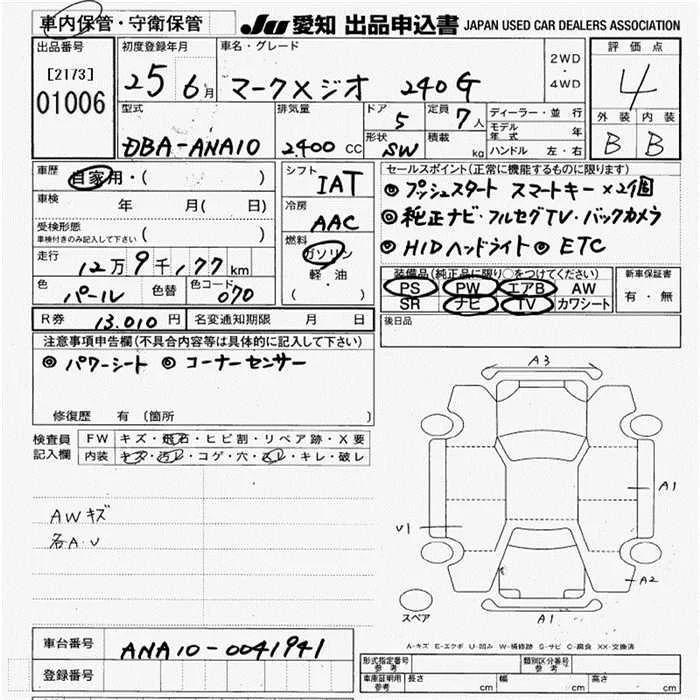 車内保管・守衛保管 JU 愛知 出品申込書 JAPAN USED CAR DEALERS ASSOCIATION
出品番号 初度登録年月 車名・グレード 評価点
[2173] 25 6月 マークXジオ 240G 2WD・4WD 4
01006
型式 排気量 ドア 5 定員 7人 ディーラー・並行 外装 内装
DBA-ANA10 2400cc 形状 SW 積載 kg モデル年式 年 B B
ハンドル 左・右
車歴 自家用・( ) シフト IAT セールスポイント(正常に機能するものに限ります)
車検 年 月( 日) 冷房 AAC ◎プッシュスタート スマートキー×2個
受検形態 ◎純正ナビ・フルセグTV・バックカメラ
車検付きのみ記入して下さい ( ) 燃料 ガソリン ◎HIDヘッドライト ◎ETC
走行 12万9千177km 軽・油 装備品(純正品に限り○をつけてください) 新車保証書
色 パール 色替 色コード 070 ( ) PS PW エアB AW 有・無
SR ナビ TV カワシート
R券 13.010円 名変通知期限 月 日 後日品
注意事項申告欄(不具合内容等は具体的に記入して下さい)
◎パワーシート ◎コーナーセンサー
A3
修復歴 有 〔箇所 〕
検査員 FW キズ・飛石・ヒビ割・リペア跡・X要
記入欄 内装 キズ・汚レ・コゲ・穴・スレ・キレ・破レ
A1
AWキズ
各A.U
U1
A2
スペア
A1
A-キズ E-エクボ U-凹み W-補修跡 S-サビ C-腐食 XX-交換済
車台番号 ANA10-0041941
形式指定番号 参考 類別区分番号 参考
登録番号 車庫証明用 参考 長さ cm 幅 cm 高さ cm